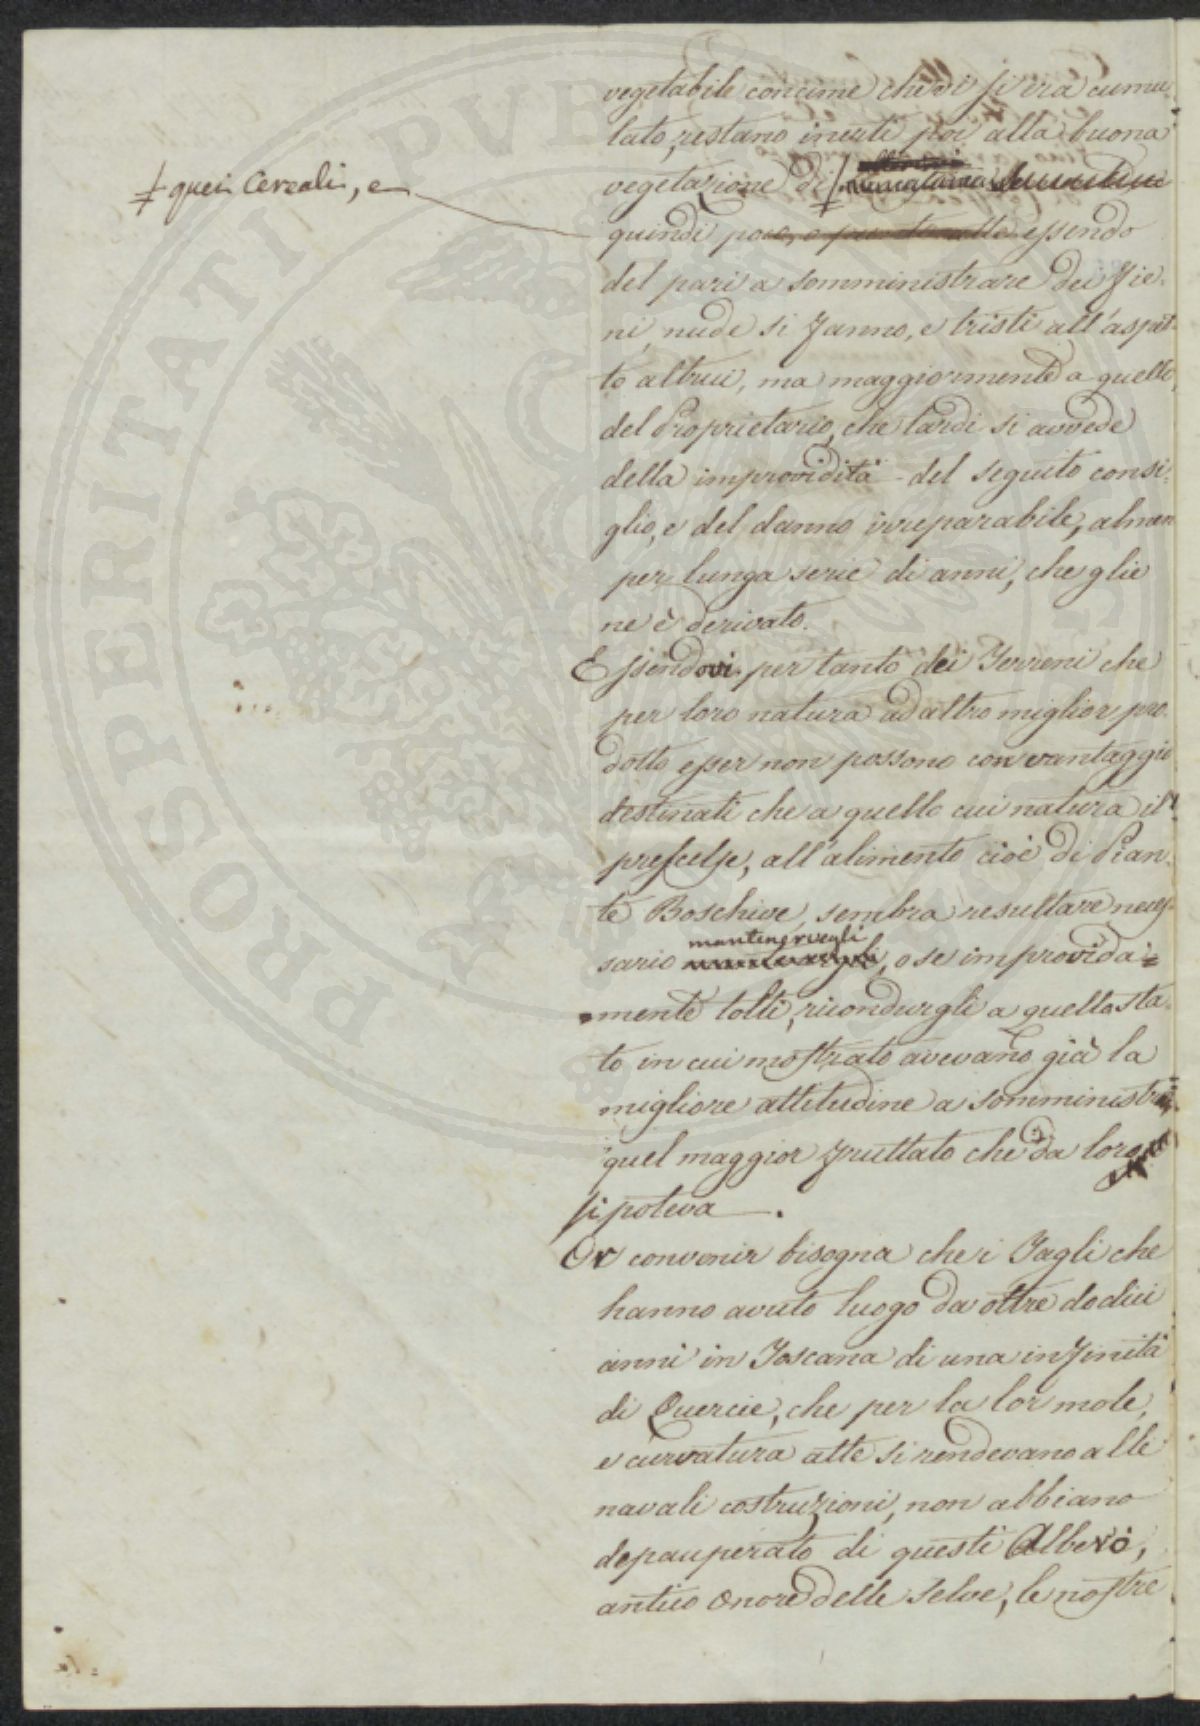 vegetabile concime che vi si era cumu
lato, restano inerti poi alla buona
vegetazione di ‡
‡ quei Cereali, e
quindi poco, o essendo
del pari a somministrare dei Fie-
ni, nude si fanno, e tristi all'aspet-
to altrui, ma maggiormente a quello
del Proprietario, che tardi si avvede
della improvidità del seguito consi-
glio, e del danno irreparabile, almen
per lunga serie di anni, che glie
ne è derivato.
Essendovi per tanto dei Terreni che
per loro natura ad altro miglior pro-
dotto esser non possono con vantaggio
destinati che a quello cui natura il
prescelse, all'alimento cioè di Pian-
te Boschive, sembra resultare neces-
mantenervegli
sario, o se improvida=
mente tolti, ricondurgli a quello sta-
to in cui mostrato avevano già la
migliore attitudine a somministrar
quel maggior fruttato che da loro
si poteva.
Or convenir bisogna che i Tagli che
hanno avuto luogo da oltre dodici
anni in Toscana di una infinità
di Quercie, che per la lor mole,
e curvatura atte si rendevano alle
navali costruzioni, non abbiano
depauperato di questi Alberi,
antico onore delle Selve, le nostre
PROSPERITATI PVB